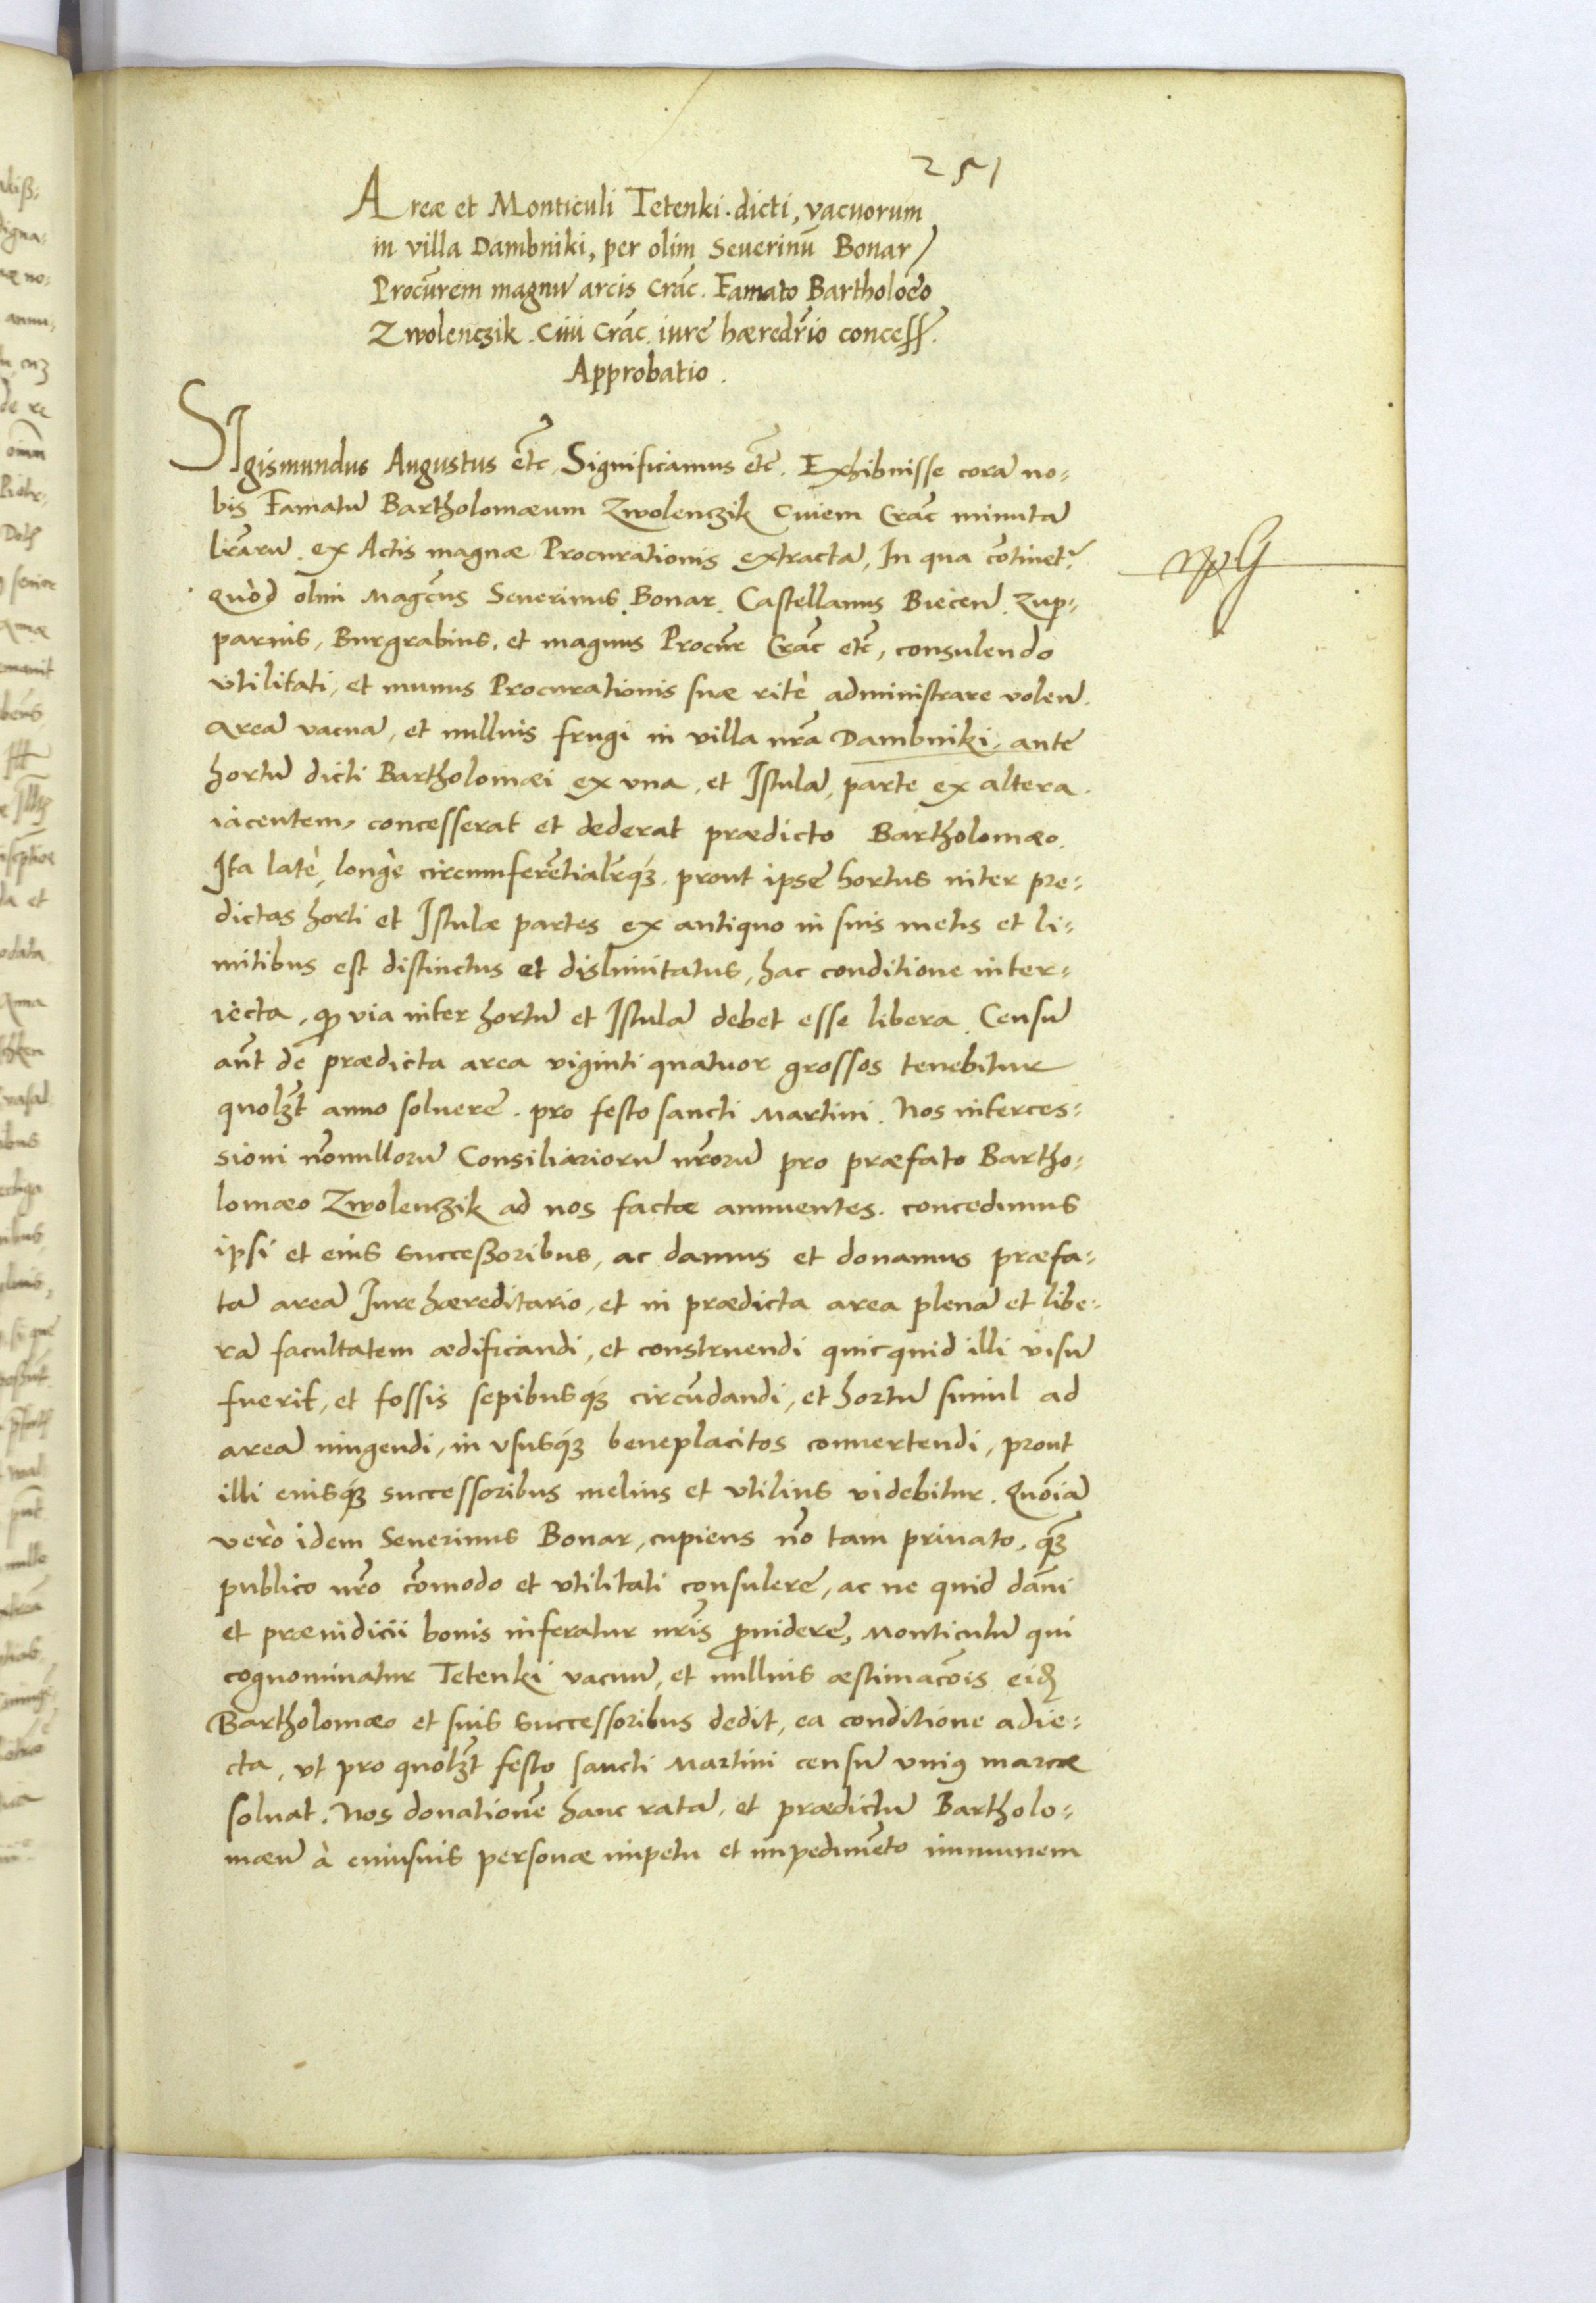 251
Areæ et Monticuli Tetenki dicti, vacuorum
in villa Dambniki, per olim Seuerinũ Bonar
Procũrem magnũ arcis Crãc. Famato Bartholoẽo
Zwolenczik Ciui Crãc. iure hæredr̃io concess.
Approbatio.
SIgismundus Augustus etc̃. Significamus etc̃. Exhibuisse corã no=
bis Famatũ Bartholomæum Zwolenczik Ciuem Crãc minutã
lr̃arũ ex Actis magnæ Procurationis extractã, In qua cõtinet̃
Quòd olim Magc̃us Seuerinus Bonar Castellanus Biecen̄. Zup=
parius, Burgrabius, et magnus Procũr Crãc etc̃, consulendo
vtilitati, et munus Procurationis suæ ritè administrare volen̄.
Areã vacuã, et nullius frugi in villa nr̃a Dambniki, ante
hortũ dicti Bartholomæi ex vna, et Istulã, parte ex altera
iacentem, concesserat et dederat prædicto Bartholomæo.
Ita latè, longè circumferẽtialr̃qꝫ prout ipse hortus inter præ=
dictas horti et Istulæ partes ex antiquo in suis metis et li=
mitibus est distinctus et dislimitatus, hac conditione inter=
iecta, ꝙ via inter hortũ et Istulã debet esse libera. Censũ
aũt de prædicta area viginti quatuor grossos tenebitur
quolꝫt anno soluere pro festo sancti Martini. Nos interces=
sioni nõnullorũ Consiliariorũ nr̃orũ pro præfato Bartho=
lomæo Zwolenczik ad nos factæ annuentes, concedimus
ipsi et eius successoribus, ac damus et donamus præfa=
tã areã Iure hæreditario, et in prædicta area plenã et libe=
rã facultatem ædificandi, et construendi quicquid illi visũ
fuerit, et fossis sepibusqꝫ circũdandi, et hortũ simul ad
areã iungendi, in vsusqꝫ beneplacitos conuertendi, prout
illi eiusqꝫ successoribus melius et vtilius videbitur. Quõiã
verò idem Seuerinus Bonar, cupiens nõ tam priuato, qꝫ̃
publico nr̃o cõmodo et vtilitati consulere, ac ne quid dãni
et præiudicii bonis inferatur nr̃is ꝓuidere, Monticulũ qui
cognominatur Tetenki vacuũ, et nullius æstimac̃ois eidꝫ
Bartholomæo et suis successoribus dedit, ea conditione adie=
cta, vt pro quolꝫt festo sancti Martini censũ vniꝰ marcæ
soluat. Nos donationẽ hanc ratã, et prædictũ Bartholo=
mæũ à cuiusuis personæ impetu et impedimẽto immunem